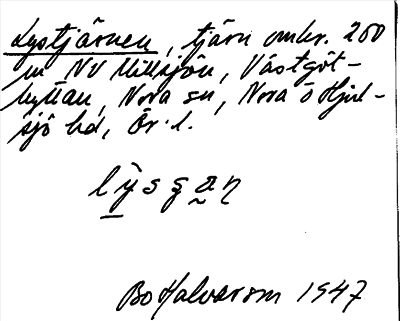 Lystjärnen, tjärn omkr. 200
m NV Millsjön, Västgöt-
hyttan, Nora sn, Nora o Hjul-
sjö bd, Ör. l.
Bo Halvarson 1947